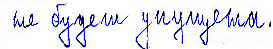 не будет упущена.